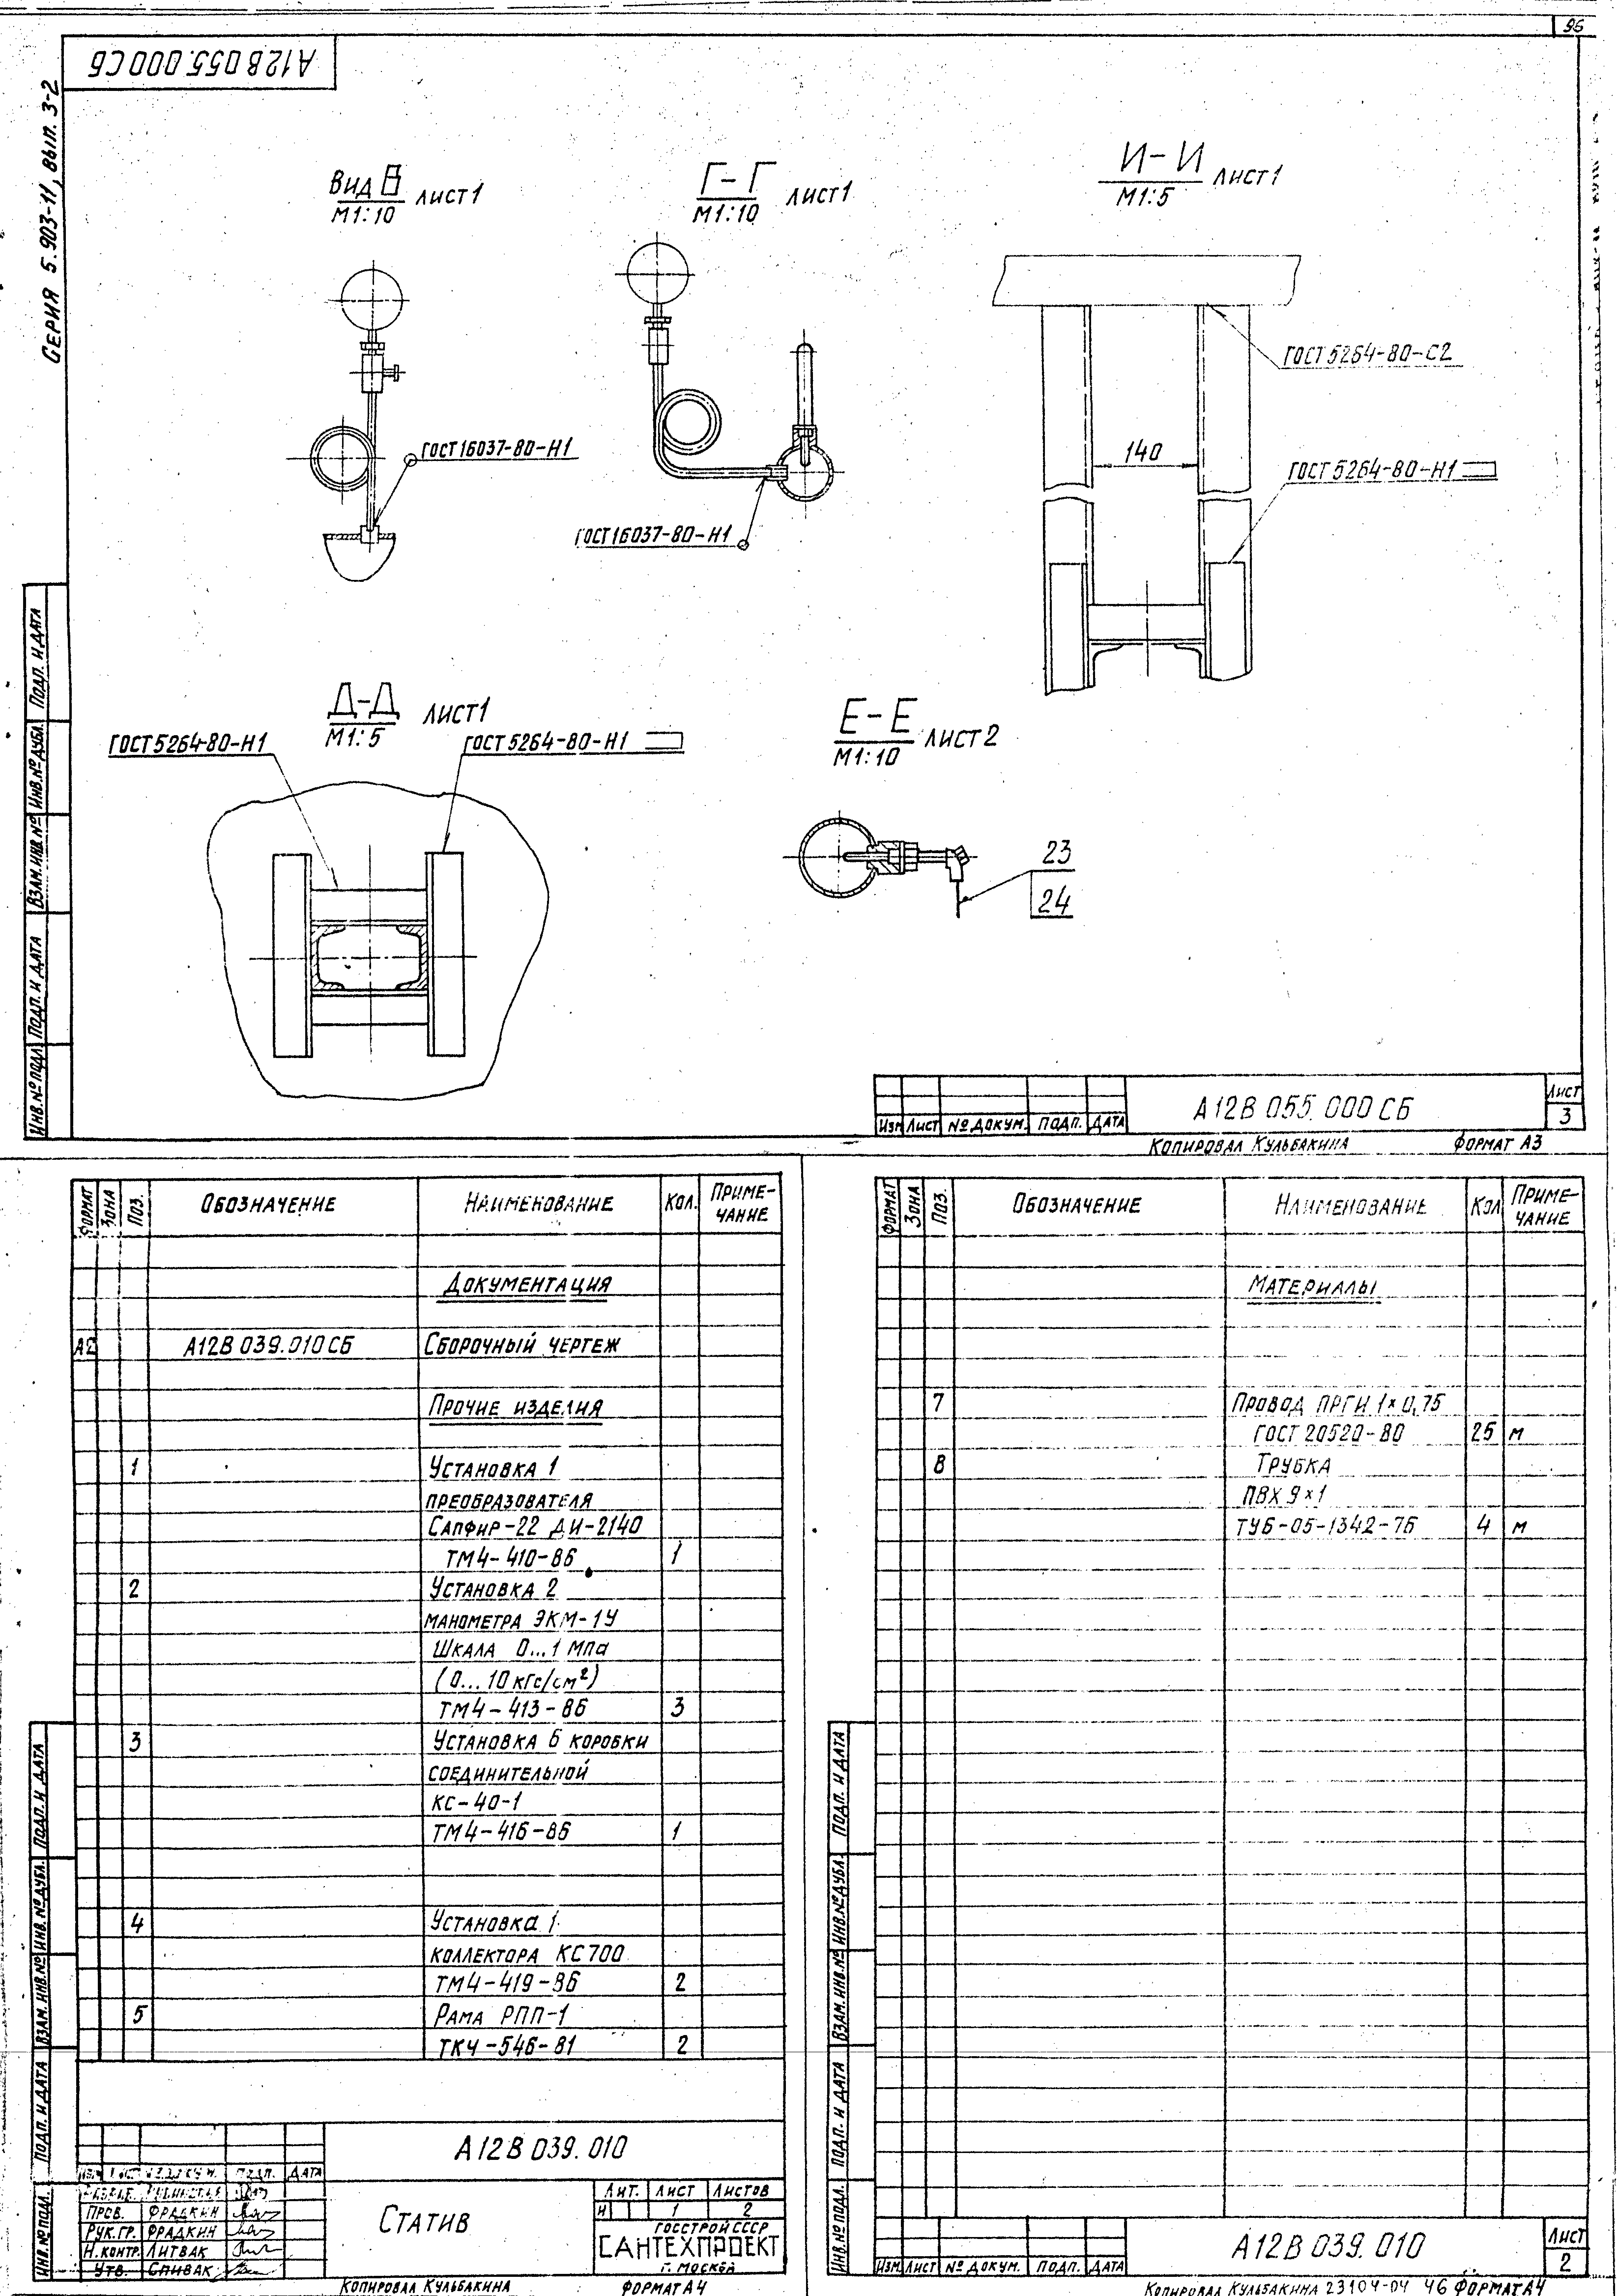 96
А12В 055.000 СБ
Серия 5.903-11, вып. 3-2
Вид В лист 1
М1:10
Г-Г лист 1
М1:10
И-И лист 1
М1:5
ГОСТ 5264-80-С2
140
ГОСТ 5264-80-Н1
ГОСТ 16037-80-Н1
ГОСТ 16037-80-Н1
Д-Д лист 1
М1:5
ГОСТ 5264-80-Н1
ГОСТ 5264-80-Н1
Е-Е лист 2
М1:10
23
24
Инв. № подл. Подп. и дата Взам. инв. № Инв. № дубл. Подп. и дата
Изм Лист № докум. Подп. Дата
А12В 055.000 СБ
Лист
3
Копировал Кульбакина Формат А3
Формат Зона Поз. Обозначение Наименование Кол. Приме-
чание
Документация
А2 А12В 039.010 СБ Сборочный чертеж
Прочие изделия
1 Установка 1
преобразователя
Сапфир-22 ДИ-2140
ТМ4-410-86 1
2 Установка 2
манометра ЭКМ-1У
Шкала 0...1 МПа
(0...10 кгс/см²)
ТМ4-413-86 3
3 Установка 6 коробки
соединительной
КС-40-1
ТМ4-416-86 1
4 Установка 1
коллектора КС700
ТМ4-419-86 2
5 Рама РПП-1
ТК4-546-81 2
Инв. № подл. Подп. и дата Взам. инв. № Инв. № дубл. Подп. и дата
А12В 039.010
Изм Лист № докум. Подп. Дата
Пров. Фрадкин
Рук. гр. Фрадкин
Н. контр. Литвак
Утв. Спивак
Статив
Лит. Лист Листов
И 1 2
Госстрой СССР
САНТЕХПРОЕКТ
г. Москва
Копировал Кульбакина Формат А4
Формат Зона Поз. Обозначение Наименование Кол Приме-
чание
Материалы
7 Провод ПРГИ 1×0,75
ГОСТ 20520-80 25 м
8 Трубка
ПВХ 9×1
ТУ6-05-1342-76 4 м
Инв. № подл. Подп. и дата Взам. инв. № Инв. № дубл. Подп. и дата
Изм Лист № докум. Подп. Дата
А12В 039.010
Лист
2
Копировал Кульбакина 23104-04 46 Формат А4